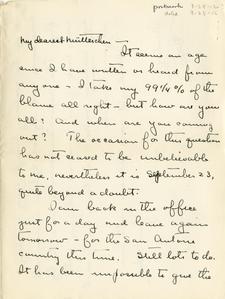 postmark 9-25-
My dearest Mütterchen —
It seems an age
since I have written or heard from
anyone — I take my 99 44/100 % of the
blame all right — but how are you
all? And when are you coming
out? The occasion for this question
has not ceased to be unbelievable
to me, nevertheless it is September 23,
quite beyond a doubt.
I am back in the office
just for a day and leave again
tomorrow — for the San Antone
country this time. Still lots to do.
It has been impossible to give the